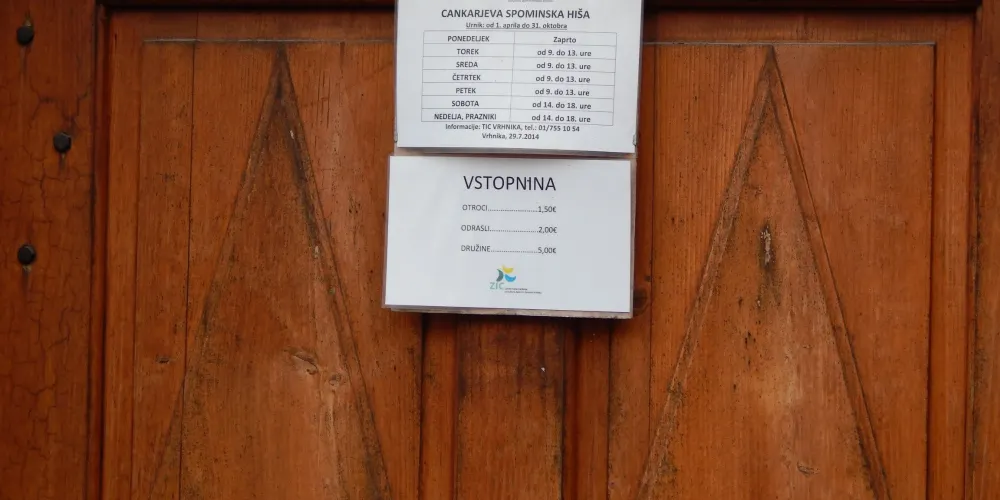 CANKARJEVA SPOMINSKA HIŠA
Urnik: od 1. aprila do 31. oktobra
PONEDELJEK Zaprto
TOREK od 9. do 13. ure
SREDA od 9. do 13. ure
ČETRTEK od 9. do 13. ure
PETEK od 9. do 13. ure
SOBOTA od 14. do 18. ure
NEDELJA, PRAZNIKI od 14. do 18. ure
Informacije: TIC VRHNIKA, tel.: 01/755 10 54
Vrhnika, 29.7.2014
VSTOPNINA
OTROCI........................1,50€
ODRASLI.......................2,00€
DRUŽINE.......................5,00€
ZIC